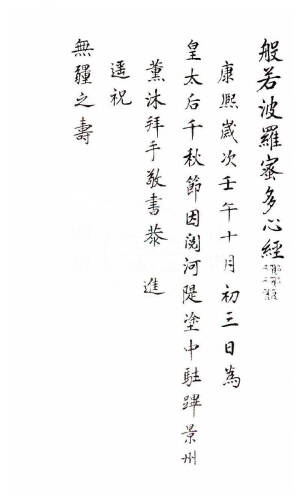 般若波羅蜜多心經
康熙歲次壬午十月初三日為
皇太后千秋節因閱河隄塗中駐蹕景州
薰沐拜手敬書恭進
遥祝
無疆之壽